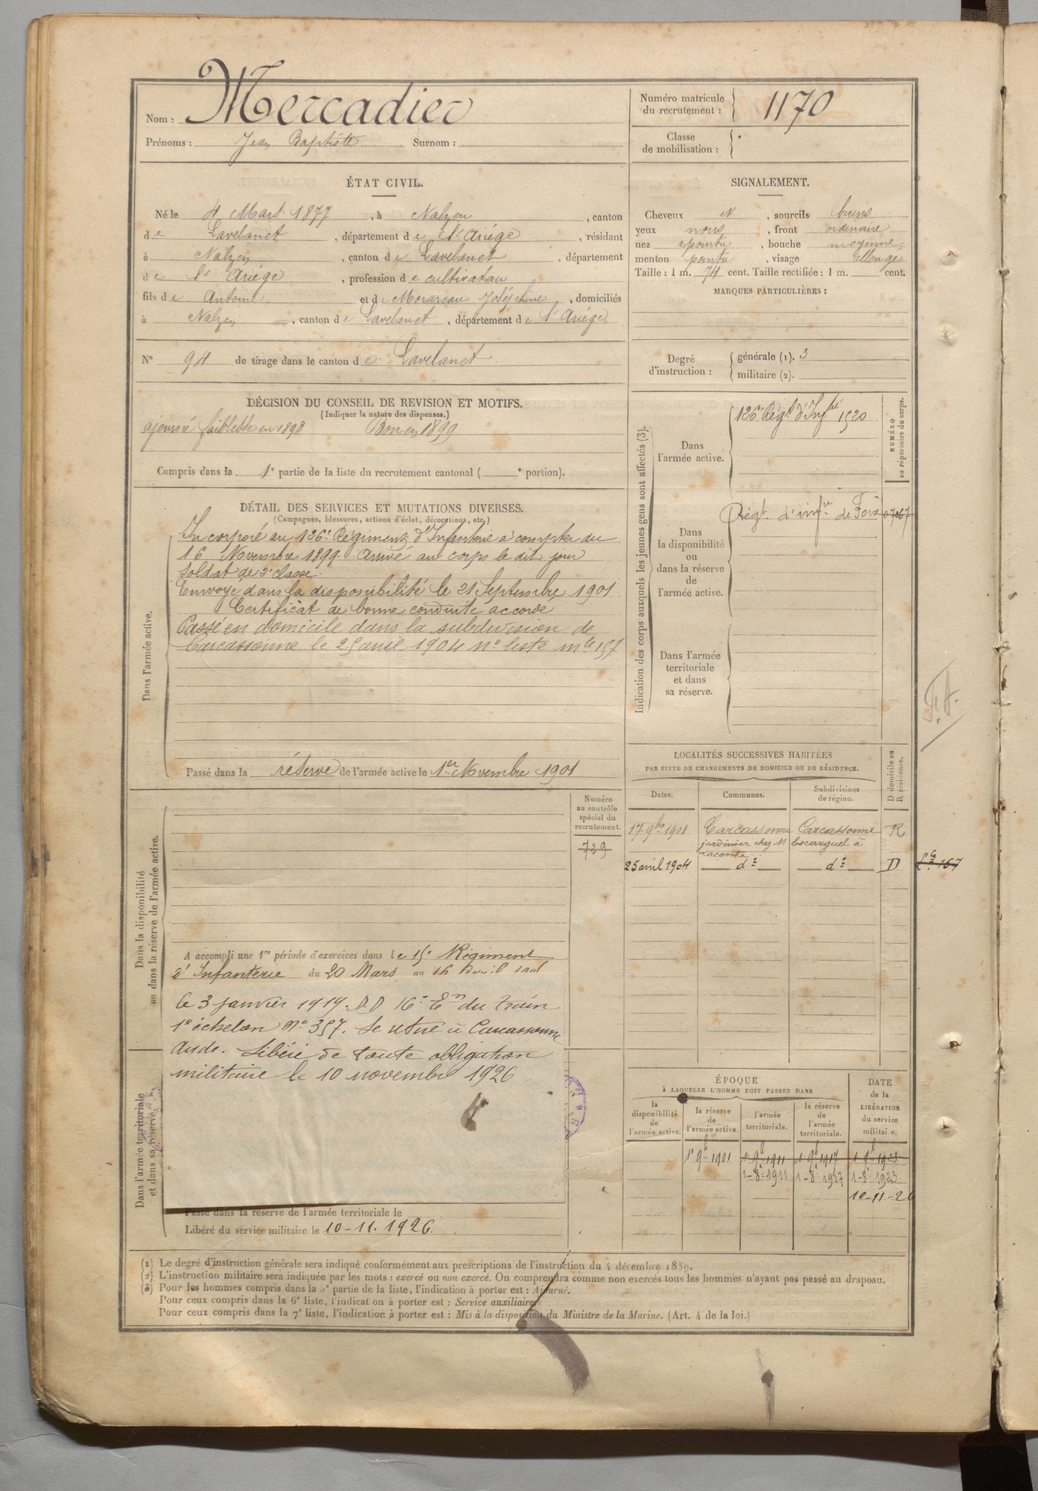 Nom : Mercadier
Prénoms : Jean Baptiste Surnom :
Numéro matricule du recrutement : 1170
Classe de mobilisation :
ÉTAT CIVIL.
Né le 4 Mars 1877, à Nalzen, canton
de Lavelanet, département de l'Ariége, résidant
à Nalzen, canton de Lavelanet, département
de l'Ariége, profession de cultivateur
fils de Antoine et de Josephine, domiciliés
à Nalzen, canton de Lavelanet, département de l'Ariége
N° 94 de tirage dans le canton de Lavelanet
SIGNALEMENT.
Cheveux N, sourcils bruns
yeux noirs, front ordinaire
nez pointu, bouche moyenne
menton pointu, visage allongé
Taille : 1 m. 74 cent. Taille rectifiée : 1 m. cent.
MARQUES PARTICULIÈRES :
Degré d'instruction : générale (1). 3
militaire (2).
DÉCISION DU CONSEIL DE REVISION ET MOTIFS.
(Indiquer la nature des dispenses.)
ajourné faiblesse en 1898 Bon en 1899
Compris dans la 1e partie de la liste du recrutement cantonal ( e portion).
DÉTAIL DES SERVICES ET MUTATIONS DIVERSES.
(Campagnes, blessures, actions d'éclat, décorations, etc.)
Dans l'armée active.
Incorporé au 126e Régiment d'Infanterie à compter du
16 Novembre 1899 Arrivé au corps le dit jour
Soldat de 2e classe
Envoyé dans la disponibilité le 21 Septembre 1901
Certificat de bonne conduite accordé
Passé en domicile dans la subdivision de
Carcassonne le 25 avril 1904 n° liste mle 157
Passé dans la réserve de l'armée active le 1er Novembre 1901
Indication des corps auxquels les jeunes gens sont affectés (3).
NUMÉRO au répertoire du corps.
Dans l'armée active.
126e Régt d'Infie 1520
Dans la disponibilité ou dans la réserve de l'armée active.
Régt. d'infie de Foix
Dans l'armée territoriale et dans sa réserve.
LOCALITÉS SUCCESSIVES HABITÉES
PAR SUITE DE CHANGEMENTS DE DOMICILE OU DE RÉSIDENCE.
Dates. Communes. Subdivisions de région. D domicile ou R résidence.
17 9bre 1901 Carcassonne Carcassonne R
jardinier chez M
25 avril 1904 d° d° D
Dans la disponibilité ou dans la réserve de l'armée active.
Numéro au contrôle spécial du recrutement.
729
A accompli une 1re période d'exercices dans le 15e Régiment
d'Infanterie du 20 Mars au 16 Avril
Dans l'armée territoriale et dans sa réserve.
le 3 janvier 1917. 16e Eon du train
1e échelon N° 357. Se retire à Carcassonne
Aude. Libéré de toute obligation
militaire le 10 novembre 1926
Passé dans la réserve de l'armée territoriale le
Libéré du service militaire le 10-11.1926.
ÉPOQUE
À LAQUELLE L'HOMME DOIT PASSER DANS
la disponibilité de l'armée active. la réserve de l'armée active. l'armée territoriale. la réserve de l'armée territoriale.
DATE de la LIBÉRATION du service militaire.
1e 9b 1901 1e 9b 1911 1e 9b 1917 1e 9b 1923
1-8e 1911 1-8e 1917 1-8e 1923
10-11-26
(1) Le degré d'instruction générale sera indiqué conformément aux prescriptions de l'instruction du 4 décembre 1889.
(2) L'instruction militaire sera indiquée par les mots : exercé ou non exercé. On comprendra comme non exercés tous les hommes n'ayant pas passé au drapeau.
(3) Pour les hommes compris dans la 5e partie de la liste, l'indication à porter est : Ajourné.
Pour ceux compris dans la 6e liste, l'indication à porter est : Service auxiliaire.
Pour ceux compris dans la 7e liste, l'indication à porter est : Mis à la disposition du Ministre de la Marine. (Art. 4 de la loi.)